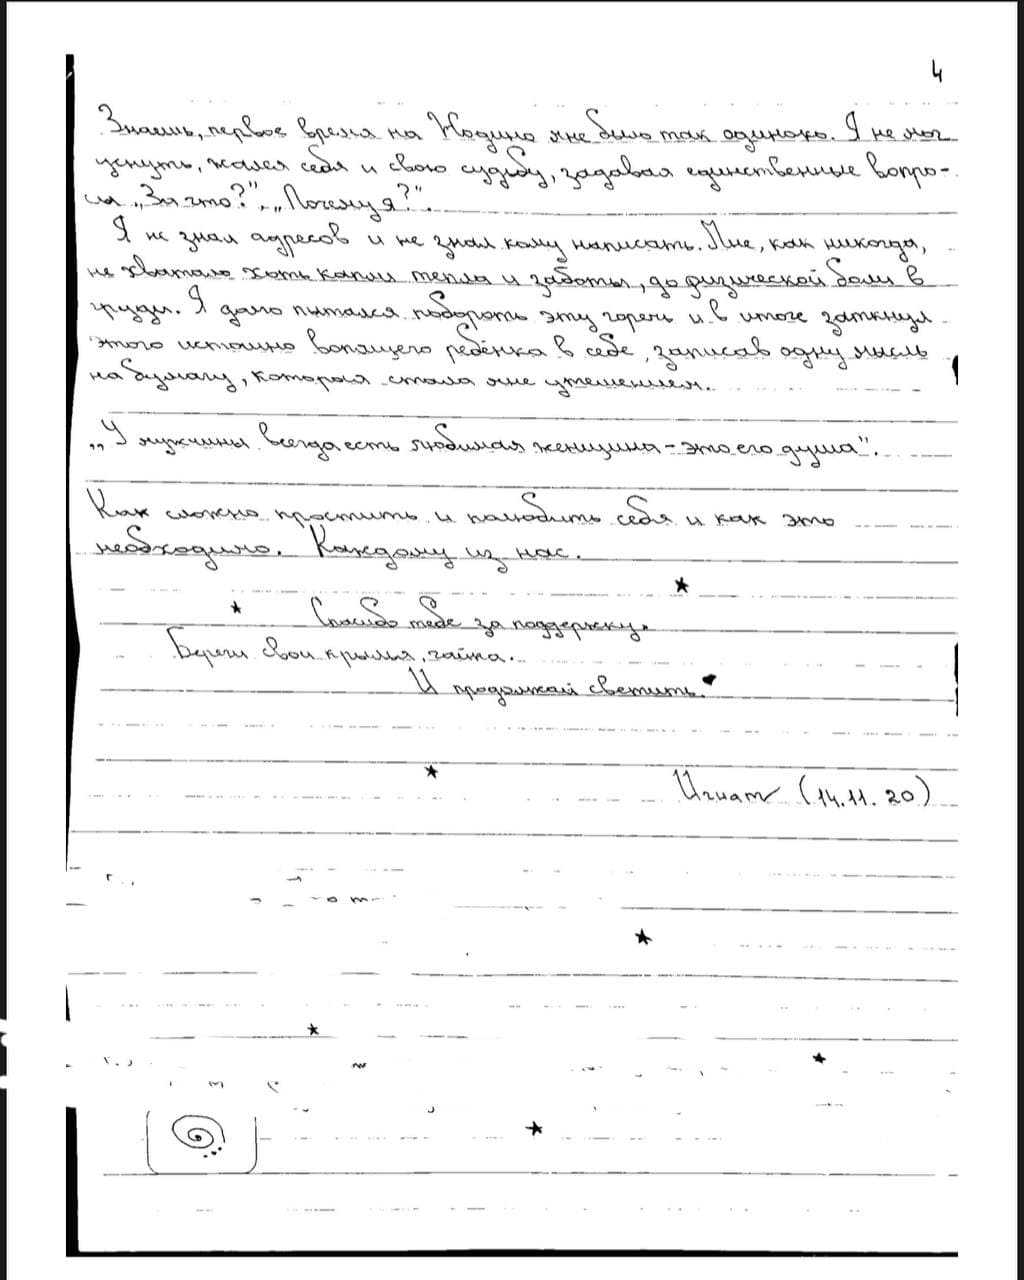 4
Знаешь, первое время на Жодино мне было так одиноко. Я не мог
уснуть, жалея себя и свою судьбу, задавая единственные вопро-
сы „За что?", „Почему я?".
Я не знал адресов и не знал кому написать. Мне, как никогда,
не хватало хоть капли тепла и заботы, до физической боли в
груди. Я долго пытался побороть эту горечь и в итоге заткнул
этого истошно вопящего ребёнка в себе, записав одну мысль
на бумагу, которая стала мне утешением.
„У мужчины всегда есть любимая женщина - это его душа".
Как сложно простить и полюбить себя и как это
необходимо. Каждому из нас.
Спасибо тебе за поддержку.
Береги свои крылья, зайка.
И продолжай светить.
Игнат (14.11.20)